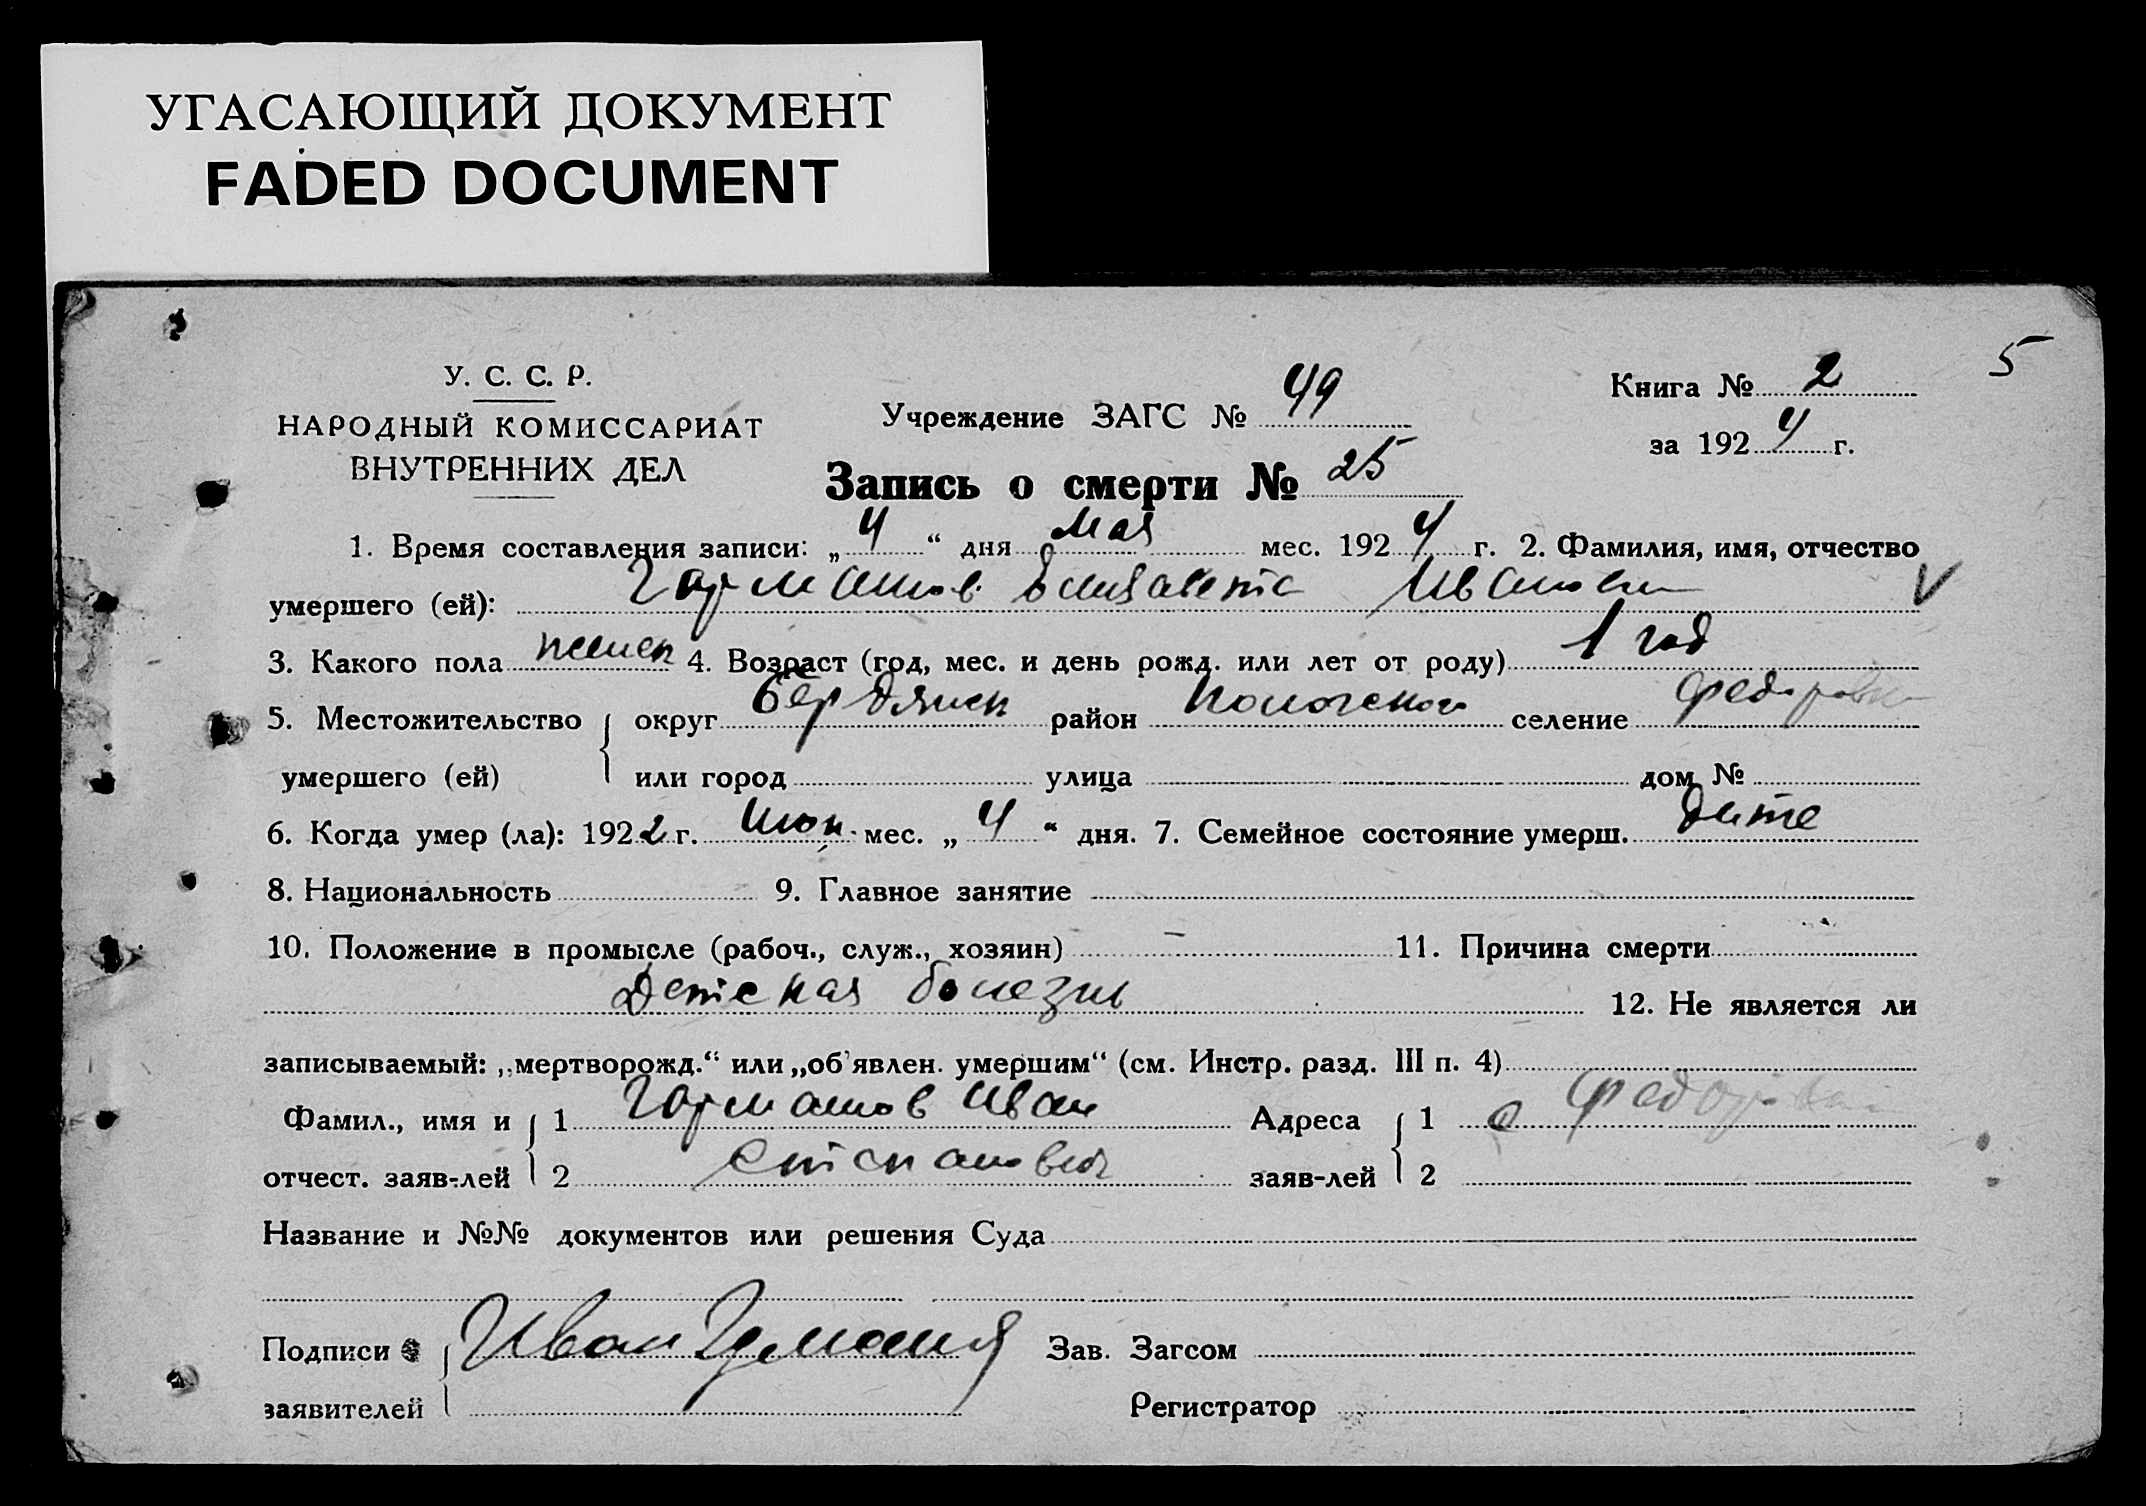 УГАСАЮЩИЙ ДОКУМЕНТ
FADED DOCUMENT
5
У. С. С. Р.
НАРОДНЫЙ КОМИССАРИАТ
ВНУТРЕННИХ ДЕЛ
Учреждение ЗАГС № 49
Книга № 2
за 1924 г.
Запись о смерти № 25
1. Время составления записи: „4“ дня мая мес. 1924 г. 2. Фамилия, имя, отчество
умершего (ей): Елизавета V
3. Какого пола женск 4. Возраст (год, мес. и день рожд. или лет от роду) 1 год
5. Местожительство округ Бердянск район селение
умершего (ей) или город улица дом №
6. Когда умер (ла): 1922 г. Июн. мес. „4“ дня. 7. Семейное состояние умерш. дите
8. Национальность 9. Главное занятие
10. Положение в промысле (рабоч., служ., хозяин) — 11. Причина смерти
Детская болезнь 12. Не является ли
записываемый: „мертворожд.“ или „об'явлен. умершим“ (см. Инстр. разд. III п. 4)
Фамил., имя и 1 Иван Адреса 1 с
отчест. заяв-лей 2 заяв-лей 2
Название и №№ документов или решения Суда
Подписи Иван Зав. Загсом
заявителей Регистратор